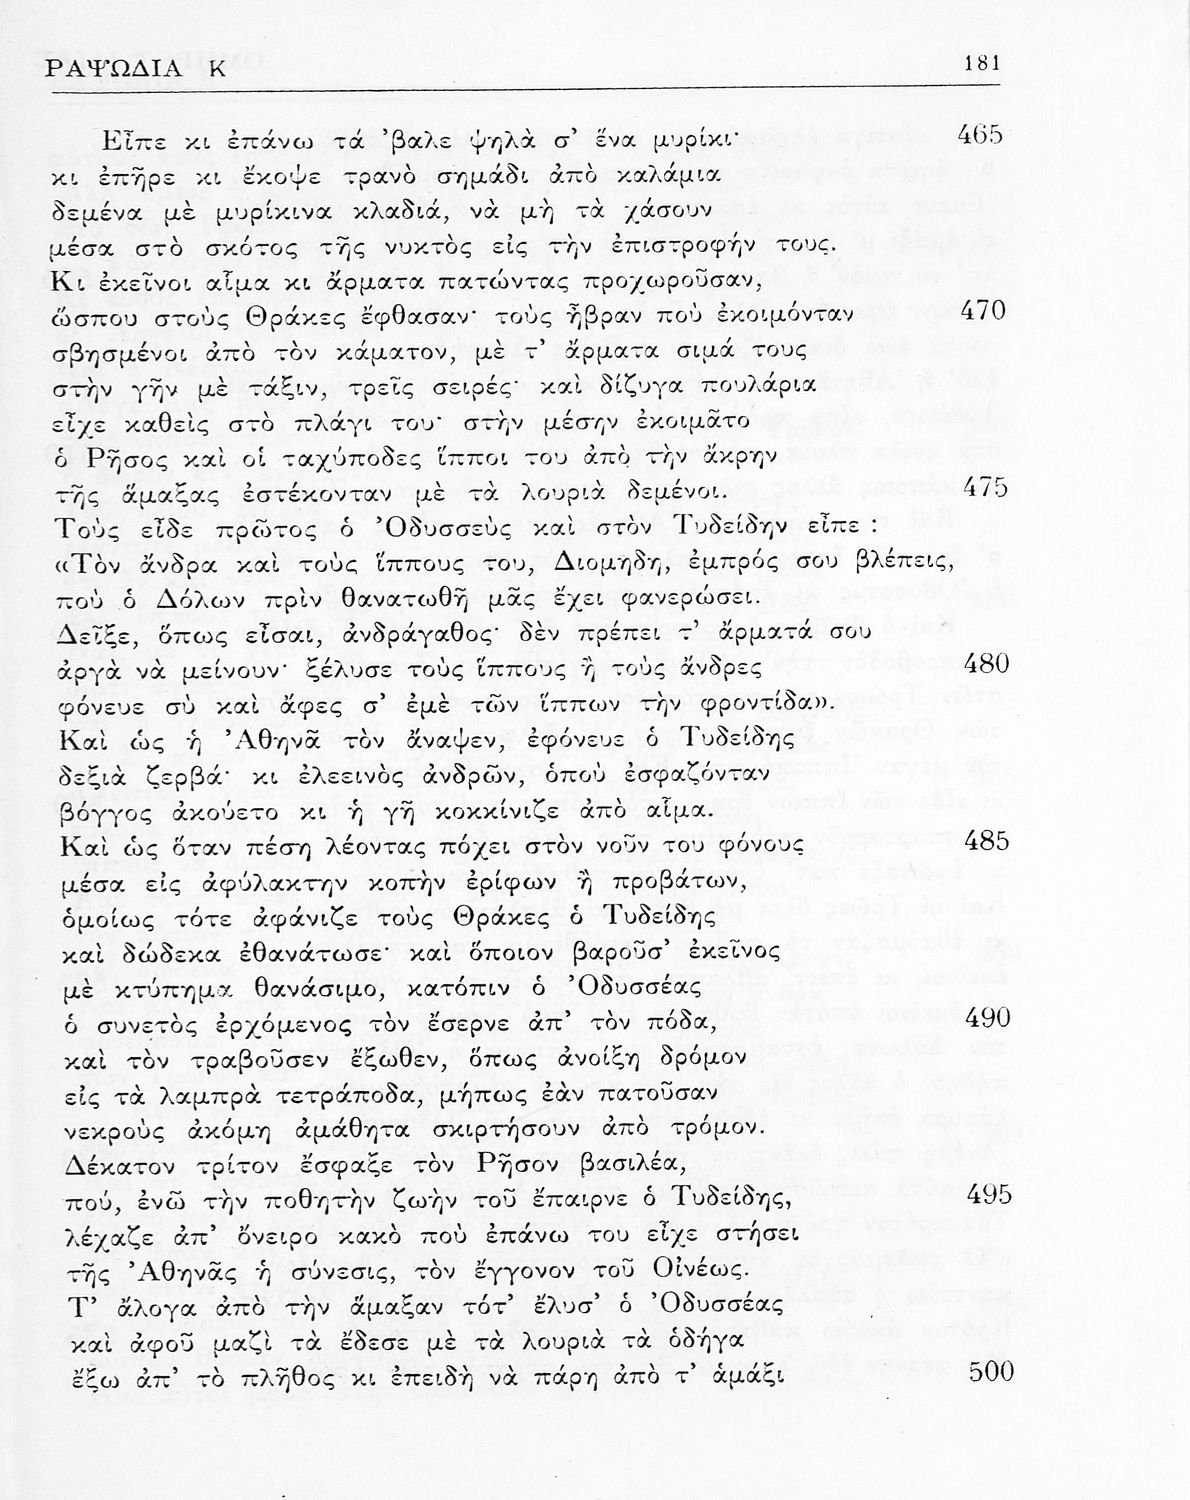 ΡΑΨΩΔΙΑ Κ 181
Εἶπε κι ἐπάνω τά 'βαλε ψηλὰ σ' ἕνα μυρίκι· 465
κι ἐπῆρε κι ἔκοψε τρανὸ σημάδι ἀπὸ καλάμια
δεμένα μὲ μυρίκινα κλαδιά, νὰ μὴ τὰ χάσουν
μέσα στὸ σκότος τῆς νυκτὸς εἰς τὴν ἐπιστροφήν τους.
Κι ἐκεῖνοι αἷμα κι ἄρματα πατώντας προχωροῦσαν,
ὥσπου στοὺς Θράκες ἔφθασαν· τοὺς ἧβραν ποὺ ἐκοιμόνταν 470
σβησμένοι ἀπὸ τὸν κάματον, μὲ τ' ἄρματα σιμά τους
στὴν γῆν μὲ τάξιν, τρεῖς σειρές· καὶ δίζυγα πουλάρια
εἶχε καθεὶς στὸ πλάγι του· στὴν μέσην ἐκοιμᾶτο
ὁ Ρῆσος καὶ οἱ ταχύποδες ἵπποι του ἀπὸ τὴν ἄκρην
τῆς ἅμαξας ἐστέκονταν μὲ τὰ λουριὰ δεμένοι. 475
Τοὺς εἶδε πρῶτος ὁ Ὀδυσσεὺς καὶ στὸν Τυδείδην εἶπε :
«Τὸν ἄνδρα καὶ τοὺς ἵππους του, Διομηδη, ἐμπρός σου βλέπεις,
ποὺ ὁ Δόλων πρὶν θανατωθῆ μᾶς ἔχει φανερώσει.
Δεῖξε, ὅπως εἶσαι, ἀνδράγαθος· δὲν πρέπει τ' ἄρματά σου
ἀργὰ νὰ μείνουν· ξέλυσε τοὺς ἵππους ἢ τοὺς ἄνδρες 480
φόνευε σὺ καὶ ἄφες σ' ἐμὲ τῶν ἵππων τὴν φροντίδα».
Καὶ ὡς ἡ Ἀθηνᾶ τὸν ἄναψεν, ἐφόνευε ὁ Τυδείδης
δεξιὰ ζερβά· κι ἐλεεινὸς ἀνδρῶν, ὁποὺ ἐσφαζόνταν
βόγγος ἀκούετο κι ἡ γῆ κοκκίνιζε ἀπὸ αἷμα.
Καὶ ὡς ὅταν πέση λέοντας πόχει στὸν νοῦν του φόνους 485
μέσα εἰς ἀφύλακτην κοπὴν ἐρίφων ἢ προβάτων,
ὁμοίως τότε ἀφάνιζε τοὺς Θράκες ὁ Τυδείδης
καὶ δώδεκα ἐθανάτωσε· καὶ ὅποιον βαροῦσ' ἐκεῖνος
μὲ κτύπημα θανάσιμο, κατόπιν ὁ Ὀδυσσέας
ὁ συνετὸς ἐρχόμενος τὸν ἔσερνε ἀπ' τὸν πόδα, 490
καὶ τὸν τραβοῦσεν ἔξωθεν, ὅπως ἀνοίξη δρόμον
εἰς τὰ λαμπρὰ τετράποδα, μήπως ἐὰν πατοῦσαν
νεκροὺς ἀκόμη ἀμάθητα σκιρτήσουν ἀπὸ τρόμον.
Δέκατον τρίτον ἔσφαξε τὸν Ρῆσον βασιλέα,
πού, ἐνῶ τὴν ποθητὴν ζωὴν τοῦ ἔπαιρνε ὁ Τυδείδης, 495
λέχαζε ἀπ' ὄνειρο κακὸ ποὺ ἐπάνω του εἶχε στήσει
τῆς Ἀθηνᾶς ἡ σύνεσις, τὸν ἔγγονον τοῦ Οἰνέως.
Τ' ἄλογα ἀπὸ τὴν ἅμαξαν τότ' ἔλυσ' ὁ Ὀδυσσέας
καὶ ἀφοῦ μαζὶ τὰ ἔδεσε μὲ τὰ λουριὰ τὰ ὁδήγα
ἔξω ἀπ' τὸ πλῆθος κι ἐπειδὴ νὰ πάρη ἀπὸ τ' ἁμάξι 500